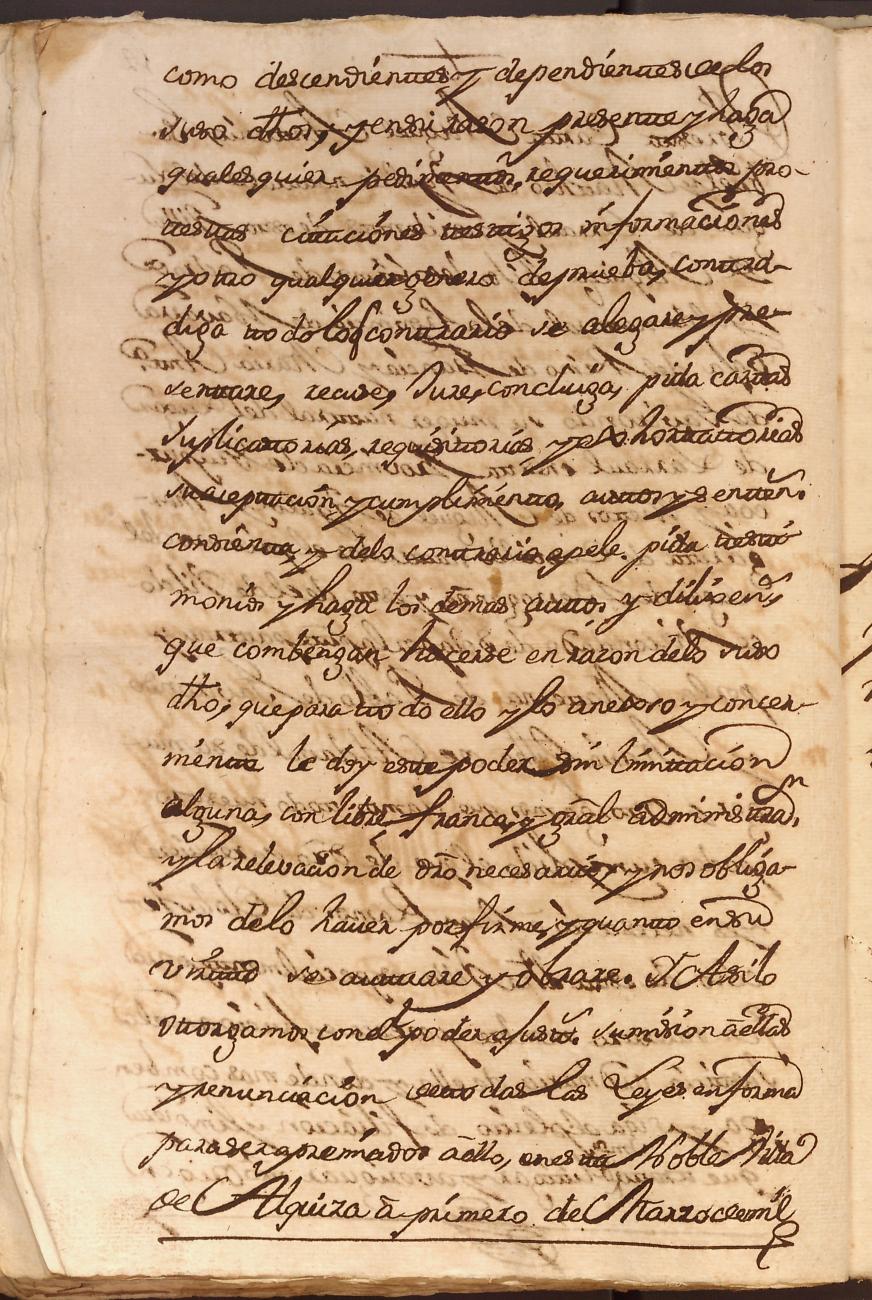 como descendientes y dependientes de los
suso dhos, y en su razon presente y haga
quales quier pedimentos, requerimientos pro-
testas citaciones testigos informaciones
y otro qualquier genero de prueba, contra-
diga todo lo q contrario se alegare y pre-
sentare, recuse, Jure, concluiga, pida cartas
Suplicatorias, requisitorias y exhortatorias
su aceptacion y cumplimiento, autos y senten.
consienta y delo contrario apele pida testi
monios y haga los demas autos y dilixen.s
que combengan hacerse en razon delo suso
dho, que para todo ello y lo anexo y concer-
niente le doy este poder sin limitacion
alguna, con libre franca, y gral administra.on
y la relevacion de dro necesario y nos obliga-
mos delo haver por firme, y quanto en su
virtud se actuare y obrare. Y Asi lo
otorgamos con el poder a Just.s sumision a ellas
y renunciacion de todas las Leyes en forma
para ser apremiados a ello, en esta Noble Villa
de Alquiza a primero de Marzo de mil